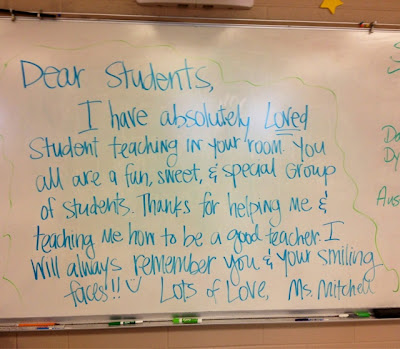 Dear Students,
I have absolutely Loved
Student teaching in your room. You
all are a fun, sweet, & special Group
of students. Thanks for helping Me &
teaching Me how to be a good teacher. I
Will always remember you & your smiling
faces!! Lots of Love, Ms. Mitchell